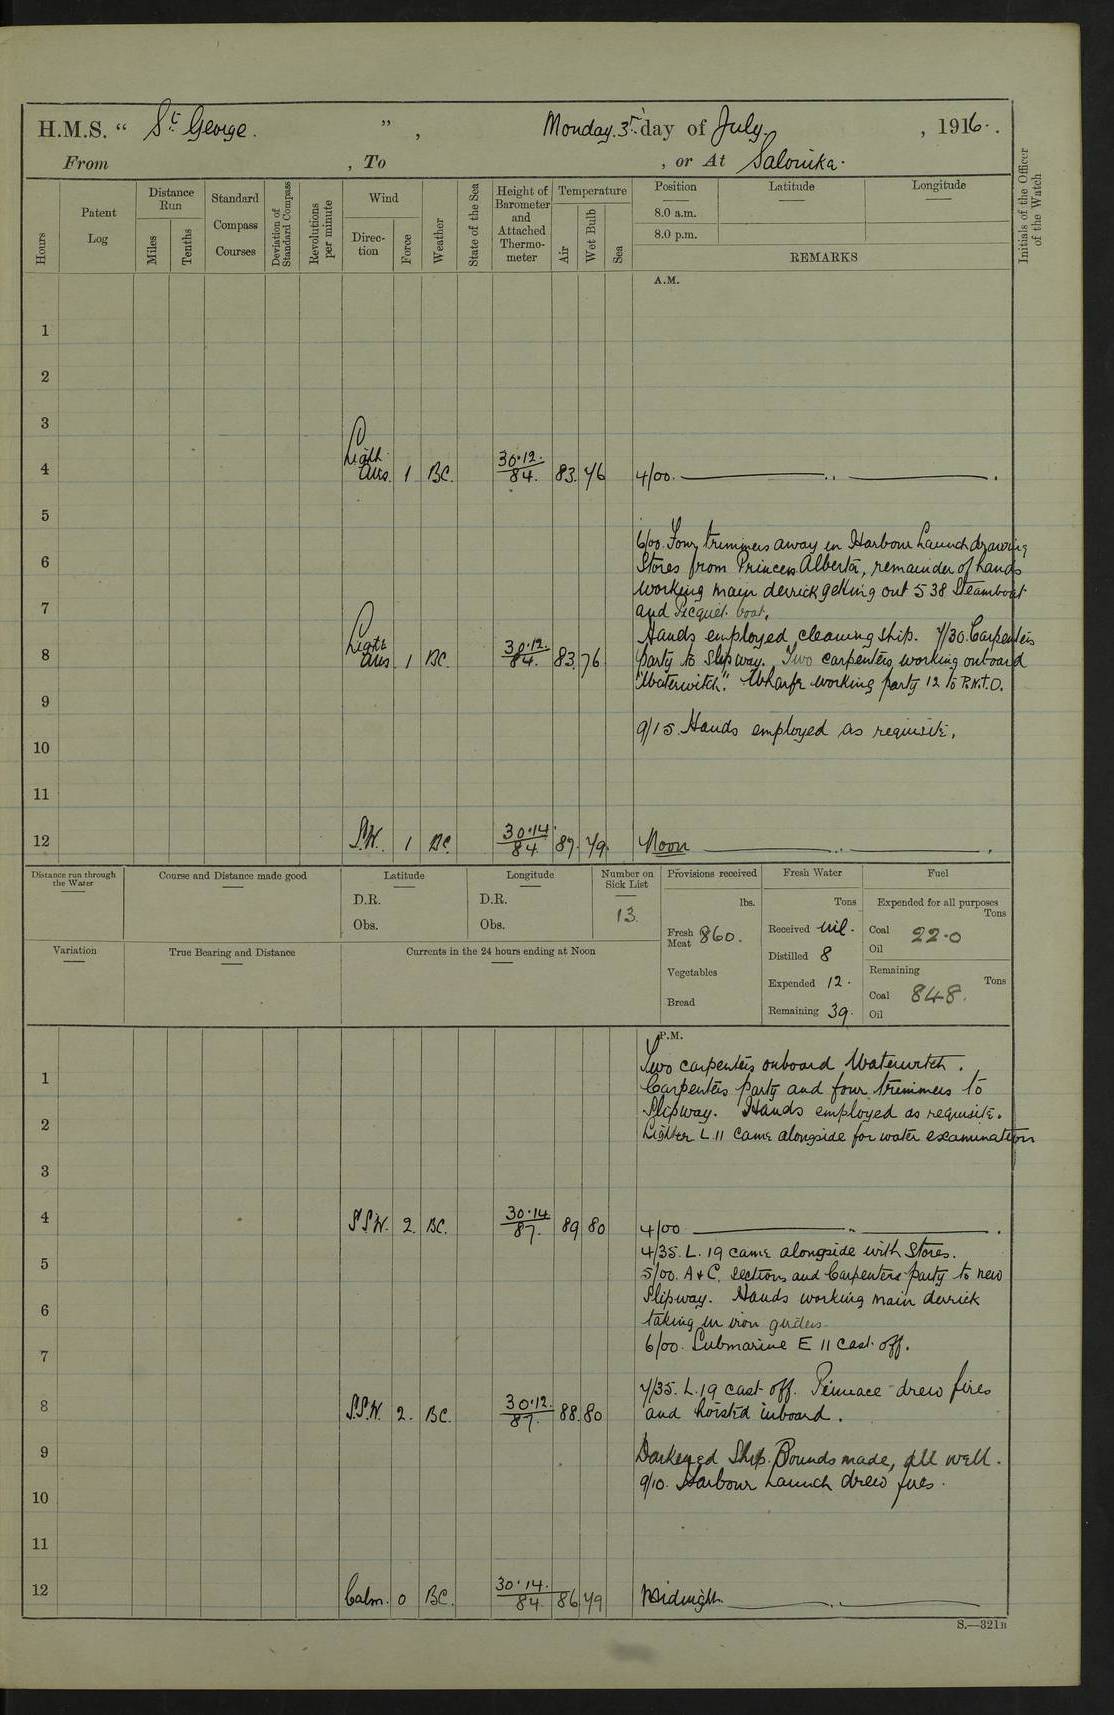 H.M.S. “ St. George. ” , Monday. 3rd day of July. , 1916.
From , To , or At Salonika.
Hours
Patent Log
Distance Run
Miles
Tenths
Standard Compass Courses
Deviation of Standard Compass
Revolutions per minute
Wind
Direc-tion
Force
Weather
State of the Sea
Height of Barometer and Attached Thermo-meter
Temperature
Air
Wet Bulb
Sea
Position Latitude Longitude
8.0 a.m.
8.0 p.m.
REMARKS
Initials of the Officer of the Watch
A.M.
1
2
3
4 Light Airs. 1 BC. 30.12./84. 83. 76 4/00. — .. — .
5
6/00. Four trimmers away in Harbour Launch drawing
6 Stores from Princess Alberta, remainder of hands
working main derrick getting out 538 Steamboat
7 and Picquet boat.
Hands employed cleaning ship. 7/30. Carpenters
8 Light Airs 1 BC. 30.12./84. 83. 76 party to Slipway. Two carpenters working onboard
"Waterwitch". Wharfe working party 12 to P.N.T.O.
9
9/15. Hands employed as requisite.
10
11
12 S.W. 1 BC. 30.14/84 87. 79. Noon — .. — .
Distance run through the Water
Course and Distance made good
Latitude
D.R.
Obs.
Longitude
D.R.
Obs.
Number on Sick List
13.
Provisions received
lbs.
Fresh Meat 860.
Vegetables
Bread
Fresh Water
Tons
Received nil.
Distilled 8
Expended 12.
Remaining 39.
Fuel
Expended for all purposes
Tons
Coal 22.0
Oil
Remaining
Tons
Coal 848.
Oil
Variation
True Bearing and Distance
Currents in the 24 hours ending at Noon
P.M.
Two carpenters onboard Waterwitch.
1 Carpenters party and four trimmers to
Slipway. Hands employed as requisite.
2 Lighter L.11 came alongside for water examination
3
4 S.S.W. 2. BC. 30.14/87. 89 80 4/00 — .. — .
4/35. L.19 came alongside with Stores.
5 5/00. A & C. Sections and Carpenters party to new
Slipway. Hands working main derrick
6 taking in iron girders.
6/00. Submarine E 11 cast off.
7
7/35. L.19 cast off. Pinnace drew fires
8 S.S.W. 2. BC. 30.12./87. 88. 80 and hoisted inboard.
9 Darkened Ship. Rounds made, all well.
9/10. Harbour Launch drew fires.
10
11
12 Calm. 0 BC. 30.14./84. 86 79 Midnight — . —
S.—321B